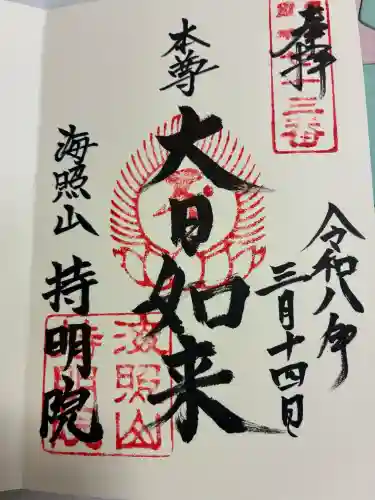 奉拝
三番
令和八年
三月十四日
本尊
大日如来
海照山
持明院
波照山